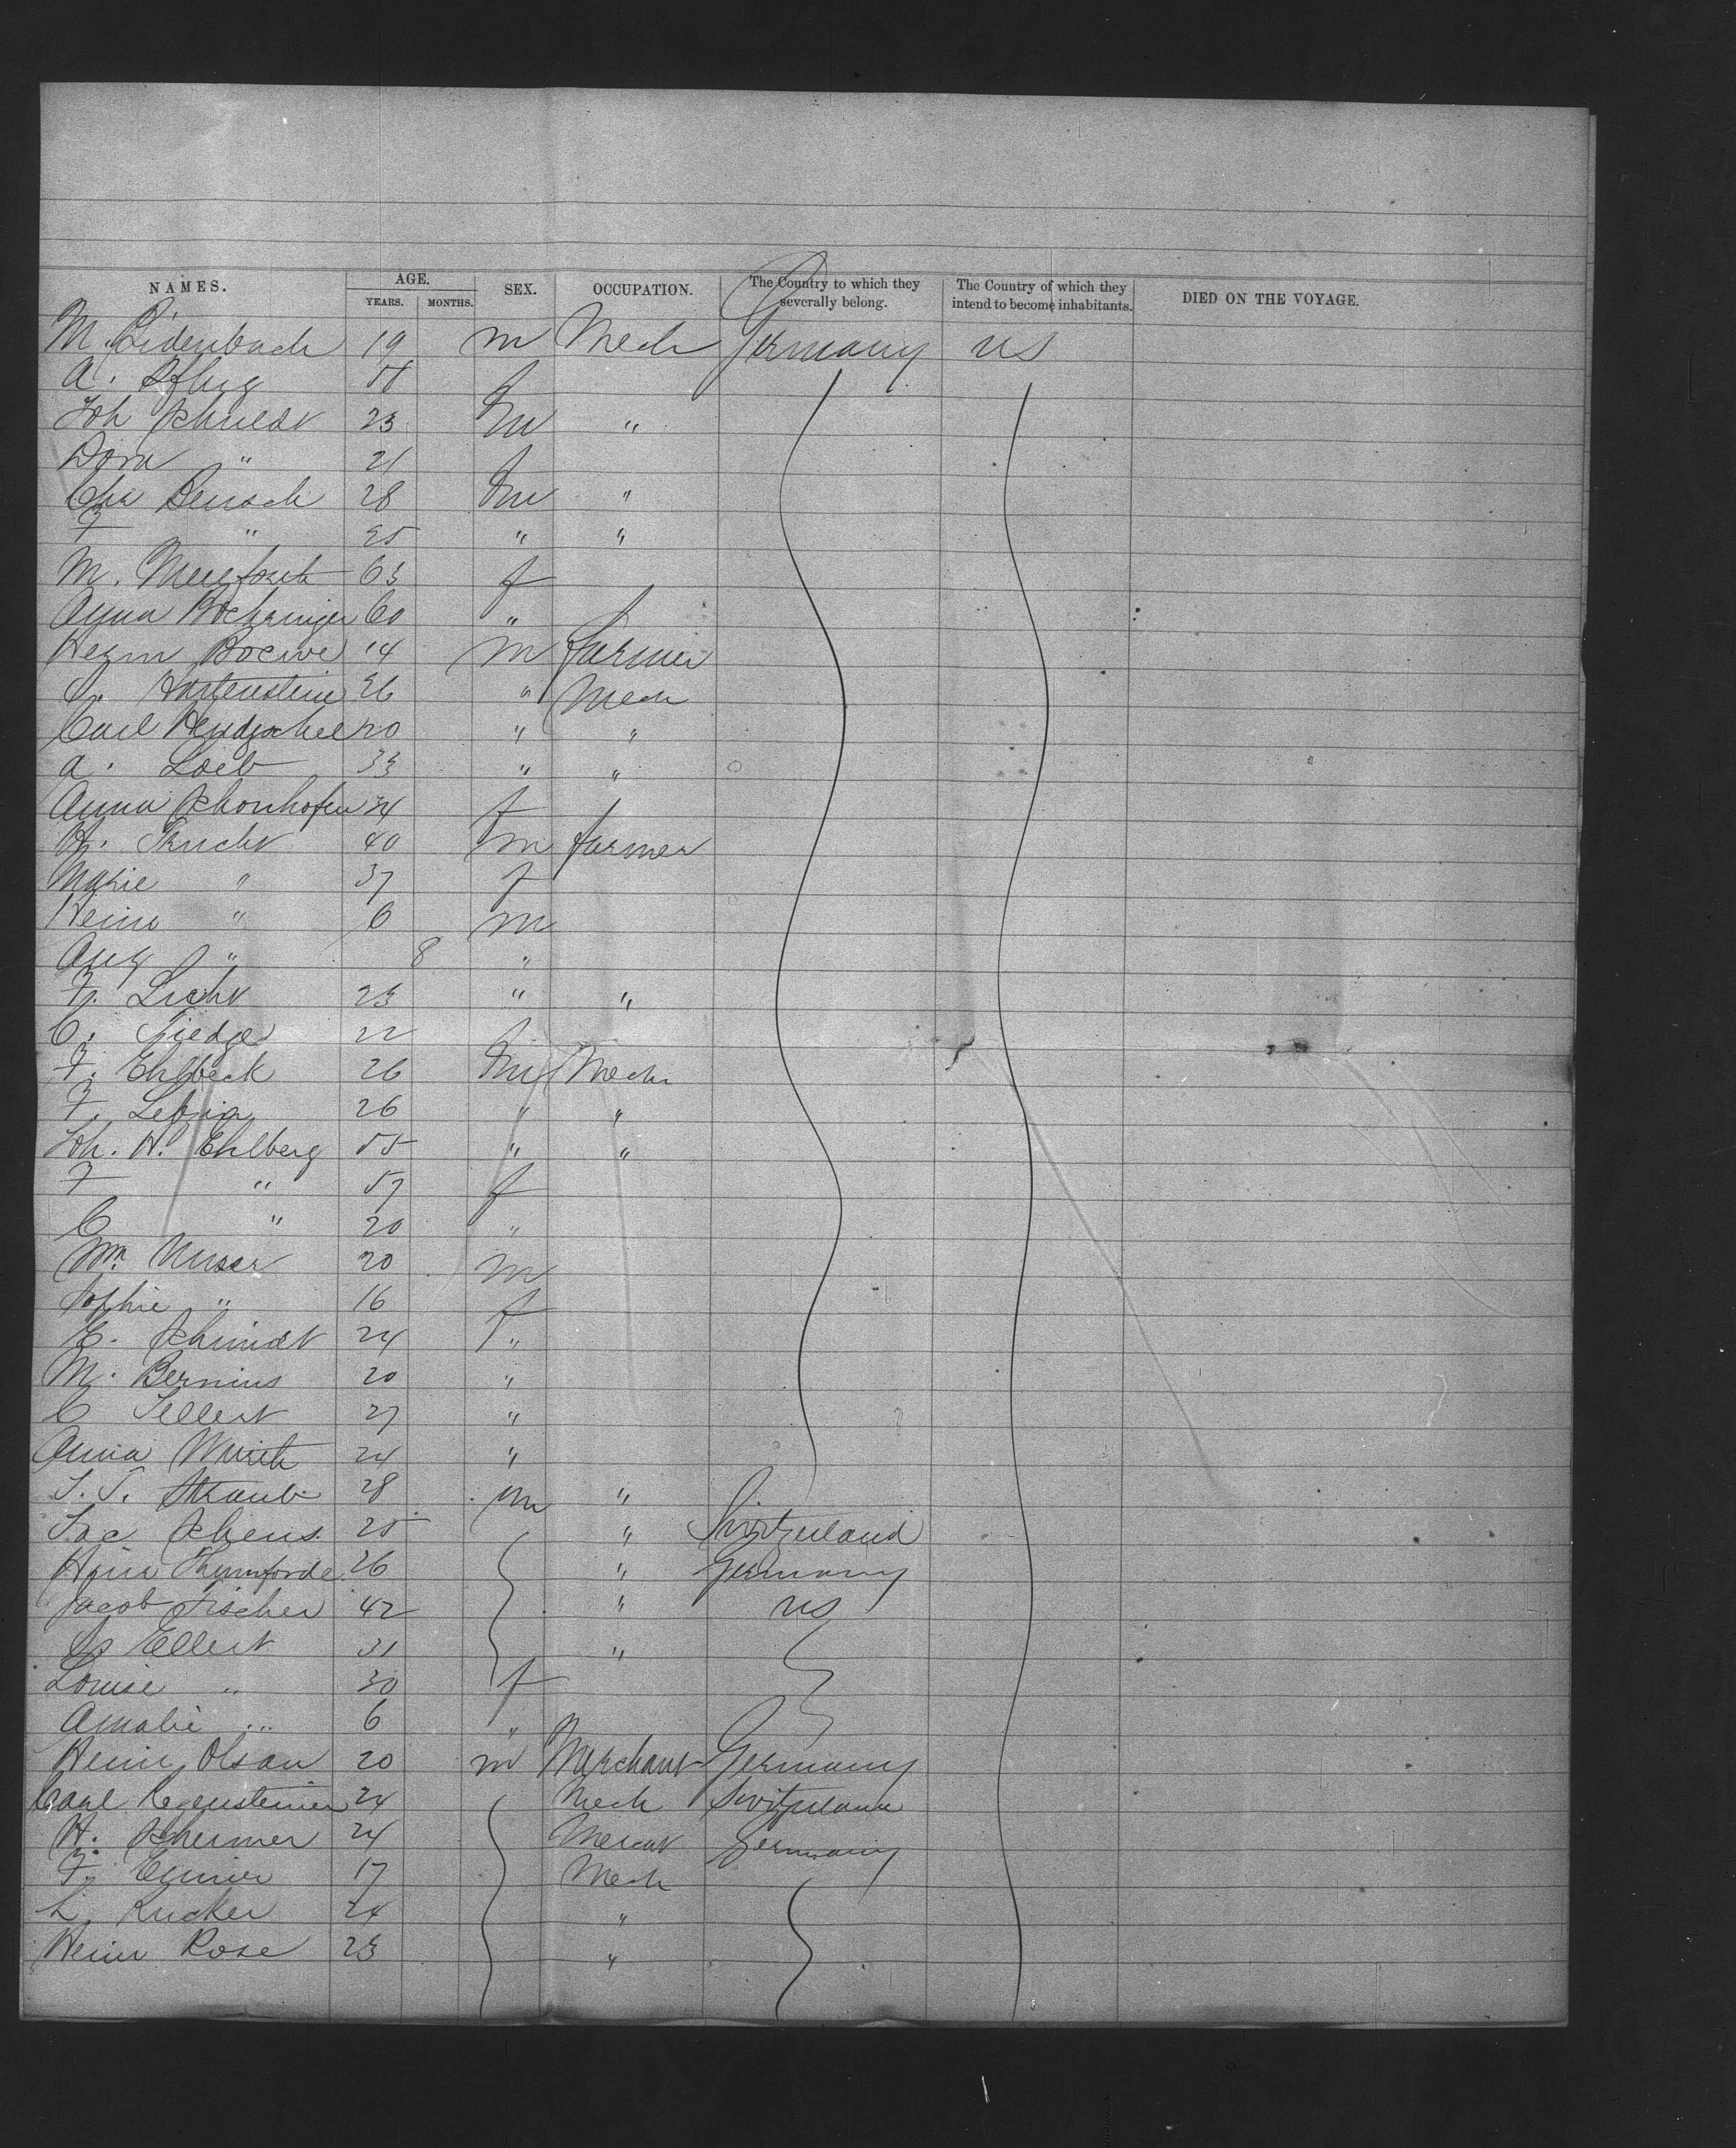 NAMES. AGE. YEARS. MONTHS. SEX. OCCUPATION. The Country to which they severally belong. The Country of which they intend to become inhabitants. DIED ON THE VOYAGE.
M. Lidenbach 19 m Mech Germany US
A. Pflug
Joh Schuldt 23 m "
Dora " 21
Chr Bensch 28 m "
F " 25 " "
M. 63 f
Anna Boehringer 60 "
Herm Boewe 14 m farmer
S. Hartenstein 26 " Mech
Carl Hendschel 20 " "
A. Loeb 33 " "
Anna Schonhofen 34 f
H. Trucht 40 m farmer
Marie " 37 f
Heinr " 6 m
Aug " 8 "
F. Licht 23 " "
C. Tiedge 22
F. Ehlbeck 26 m Mech
F. 26 " "
Joh. H. Ehlberg 55 " "
F " 57 f
C " 20 "
Wm. Musser 20 m
Sophie " 16 f
E. Schmidt 24 "
M. Bernius 20 "
C Tellert 27 "
Anna Wurth 24 "
J. S. Straub 28 m "
Jac Schens 25 " Switzerland
Heinr 26 " Germany
Jacob Fischer 42 " US
Ellert 31 "
Louise " 30 f
Amalie " 6 "
Heinr Olsan 20 m Merchant Germany
Carl Regensteiner 24 Mech Switzerland
H. Schermer 24 Mercht Germany
F. 17 Mech
L. Rucker 24 "
Heinr Rose 23 "